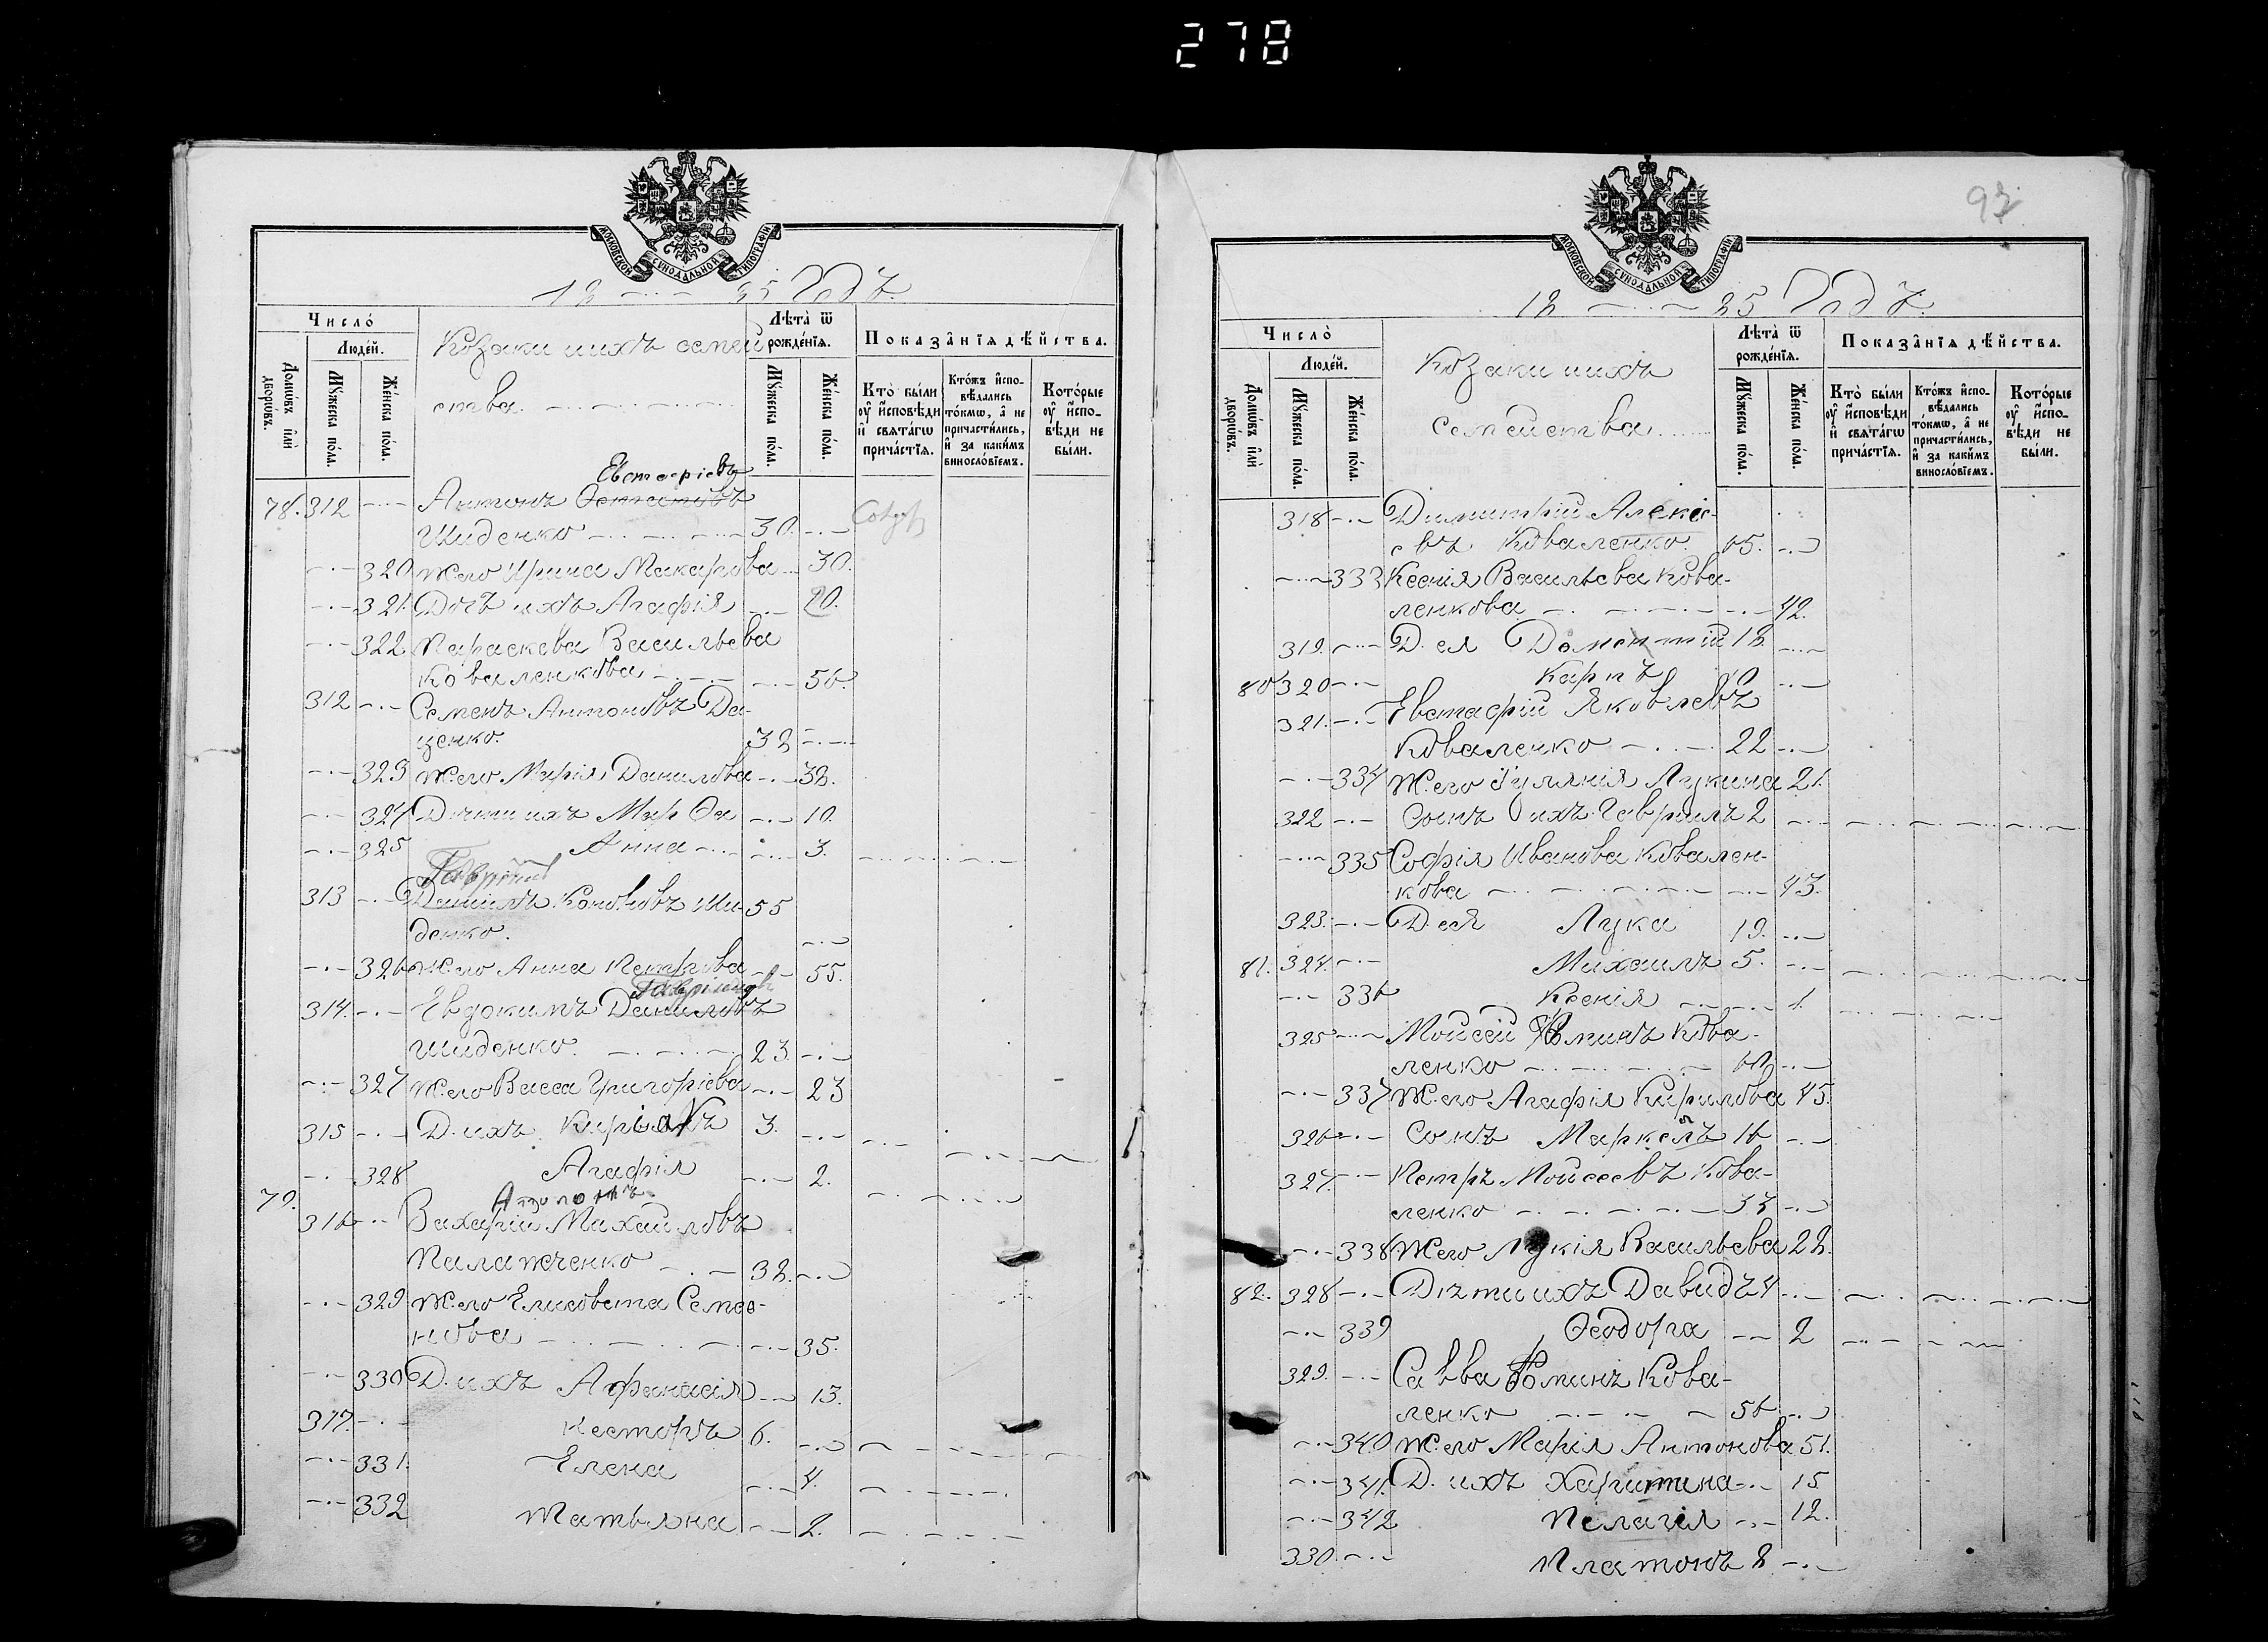 278
МОСКОВСКОЙ СѴНОДАЛЬНОЙ ТИПОГРАФІИ
18 85 Годъ.
Число̀
Людéй.
Домѡ́въ и҆лѝ дворѡ́въ.
Мꙋ́жеска по́ла.
Же́нска по́ла.
Козаки иихъ семей
ства.
Лѣта̀ ѿ рожде́нїѧ.
Мꙋ́жеска по́ла.
Же́нска по́ла.
Показа̑нїѧ дѣ́йства.
Кто̀ были
ᲂу҆ и҆сповѣди
и҆ свѧта́гѡ
прича́стїѧ.
Кто́жъ и҆спо-
вѣдались
то́кмѡ, а҆ не
причасти́лись,
и҆ за каки́мъ
винословїемъ.
Кото́рые
ᲂу҆ и҆спо-
вѣди не
бы́ли.
Евстафіевъ
78. 312 Антонъ Остаповъ
Шиденко 30.
320 Ж.его Ирина Макарова 30.
321. Дочь ихъ Агафія 20.
322 Параскева Васильева
Коваленкова 56.
312 Семенъ Антоновъ Да-
ценко. 38
323 Ж.его Марія Данилова 38.
324 Дѣти ихъ Марѳа 10.
325 Анна 3.
Гавріилъ
313 Даніилъ Кононовъ Ши- 55
денко.
326 Ж.его Анна Петрова 55.
314. Евдокимъ Даниловъ
Шиденко. 23.
327 Ж.его Васса Григоріева 23
315 Д. ихъ Киріакъ 3.
328 Агафія 2.
79.
316 Захарій Михайловъ
Палажченко 38.
329 Ж.его Елисавета Семео-
нова 35.
330 Д. ихъ Афанасія 13.
317. Несторъ 6.
331. Елена 4.
332 Татьяна 2.
МОСКОВСКОЙ СѴНОДАЛЬНОЙ ТИПОГРАФІИ
18 85 Годъ.
Число̀
Людéй.
Домѡ́въ и҆лѝ дворѡ́въ.
Мꙋ́жеска по́ла.
Же́нска по́ла.
Козаки иихъ
семейства
Лѣта̀ ѿ рожде́нїѧ.
Мꙋ́жеска по́ла.
Же́нска по́ла.
Показа̑нїѧ дѣ́йства.
Кто̀ были
ᲂу҆ и҆сповѣди
и҆ свѧта́гѡ
прича́стїѧ.
Кто́жъ и҆спо-
вѣдались
то́кмѡ, а҆ не
причасти́лись,
и҆ за каки́мъ
винословїемъ.
Кото́рые
ᲂу҆ и҆спо-
вѣди не
бы́ли.
318 Димитрій Алекіе-
евъ Коваленко. 65.
333 Ксенія Васильева Кова-
ленкова 42.
319. Д. ея Доментій 18.
80 320 Карпъ 10
321. Евстафій Яковлевъ
Коваленко 22
334 Ж.его Іулянія Лукина 21.
322 Сынъ ихъ Гавріилъ 2
335 Софія Иванова Ковален-
кова 43.
323. Д. ея Лука 19.
81. 324. Михаилъ 5.
336 Ксенія 1.
325 Мойсей Фоминъ Кова-
ленко 60.
337 Ж.его Агафія Кирилова 45.
326 Сынъ Маркелъ 16
327. Петръ Мойсеевъ Кова-
ленко 33
338. Ж.его Лукія Васильева 28.
82. 328 Дѣти ихъ Давидъ 4
339 Ѳеодора 2
329. Савва Фоминъ Кова-
ленко 56
340 Ж.его Марія Антонова 51.
341. Д. ихъ Харитина 15
342 Пелагія 12.
330. Платонъ 8